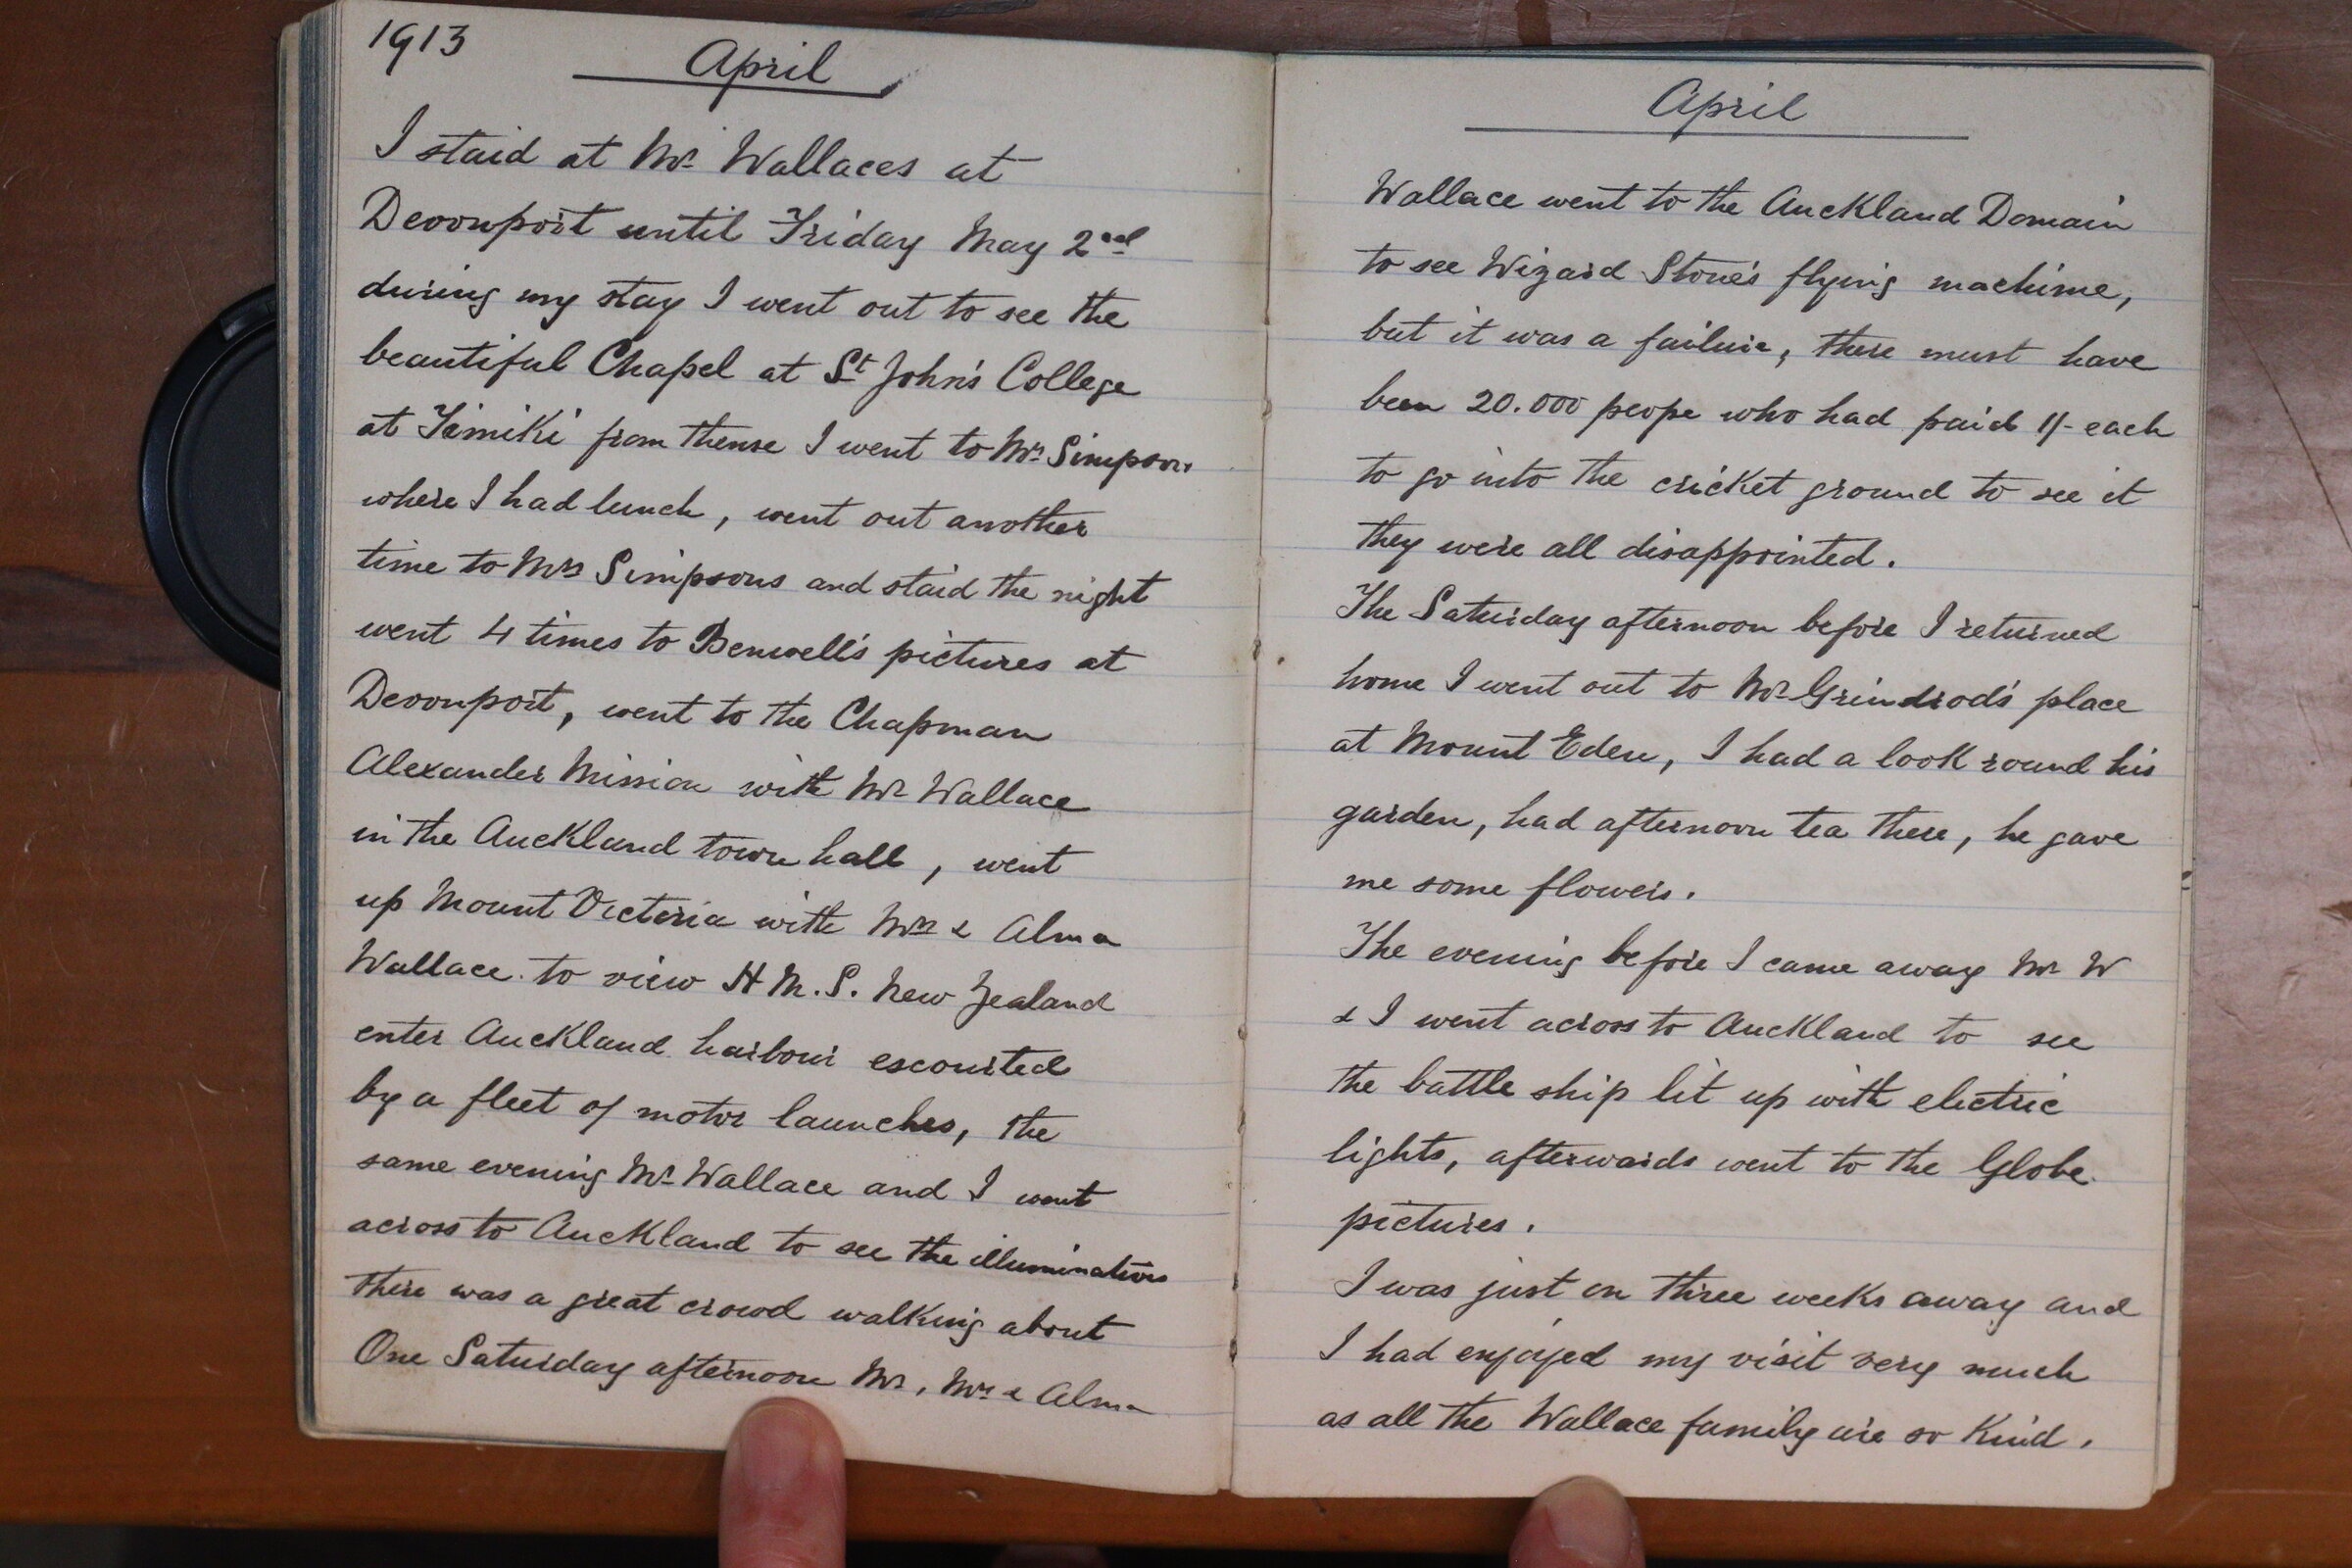 1913
April
I staid at Mr Wallaces at
Devonport until Friday May 2nd
during my stay I went out to see the
beautiful Chapel at St John's College
at Timiki from thense I went to Mrs Simpsons
where I had lunch, went out another
time to Mrs Simpsons and staid the night
went 4 times to Benwell's pictures at
Devonport, went to the Chapman
Alexander Mission with Mr Wallace
in the Auckland town hall, went
up Mount Victoria with Mrs & Alma
Wallace to view H.M.S. New Zealand
enter Auckland harbour escourted
by a fleet of motor launches, the
same evening Mr Wallace and I went
across to Auckland to see the illuminations
there was a great crowd walking about
One Saturday afternoon Mr, Mrs & Alma
April
Wallace went to the Auckland Domain
to see Wizard Stone's flying machine,
but it was a failure, there must have
been 20.000 peope who had paid 1/- each
to go into the cricket ground to see it
they were all disappointed.
The Saturday afternoon before I returned
home I went out to Mr Grindrod's place
at Mount Eden, I had a look round his
garden, had afternoon tea there, he gave
me some flowers.
The evening before I came away Mr W
& I went across to Auckland to see
the battle ship lit up with electric
lights, afterwards went to the Globe
pictures.
I was just on three weeks away and
I had enjoyed my visit very much
as all the Wallace family are so kind.